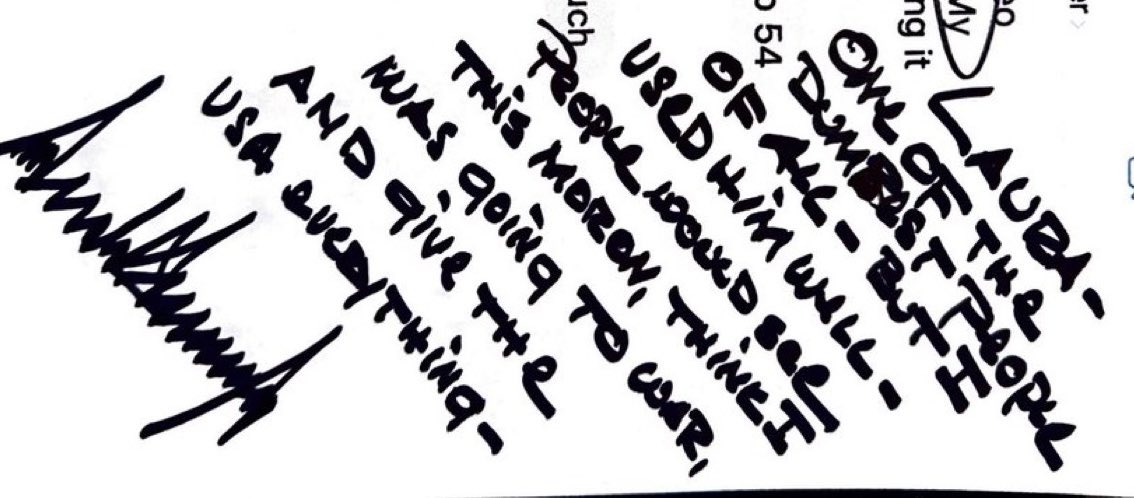 er ›
eo
My
ng it
o 54
uch
LAURA-
ONE OF THE
DUMBEST PEOPLE
OF ALL - BUT I
USED HIM WELL -
PEOPLE WOULD SEE
THIS MORON, THINK I
WAS GOING TO WAR,
AND GIVE THE
USA EVERYTHING-